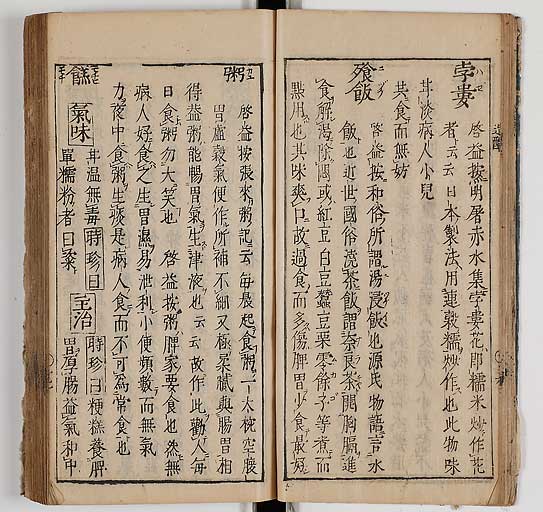 孛婁
啓益按明屠赤水集孛婁花即糯米炒作花
者云云日本製法用連穀糯炒作也此物味
甘淡病人小兒
共食而無妨
飱飯
啓益按和俗所謂湯浸飯也源氏物語言水
飯也近世國俗澆茶飯謂奈良茶開胸膈進
食解渴除
或紅豆白豆蠶豆栗零餘子等煮而
點用也其味爽口故過食而多傷脾胃少食最
粥
啓益按張來粥記云每晨起食粥一大椀空腹
胃虛穀氣便作所補不細又極柔膩與腸胃相
得益粥能暢胃氣生津液也云云故作此勸人每
日食粥勿大笑也 啓益按粥脾家要食也然無
病人好食之生胃濕易泄利小便頻數而無氣
力夜中食粥生痰是病人食而不可為常食也
餻
氣味 甘温無毒 時珍曰
單糯粉者曰粢
主治 時珍曰粳糕養脾
胃厚腸益氣和中